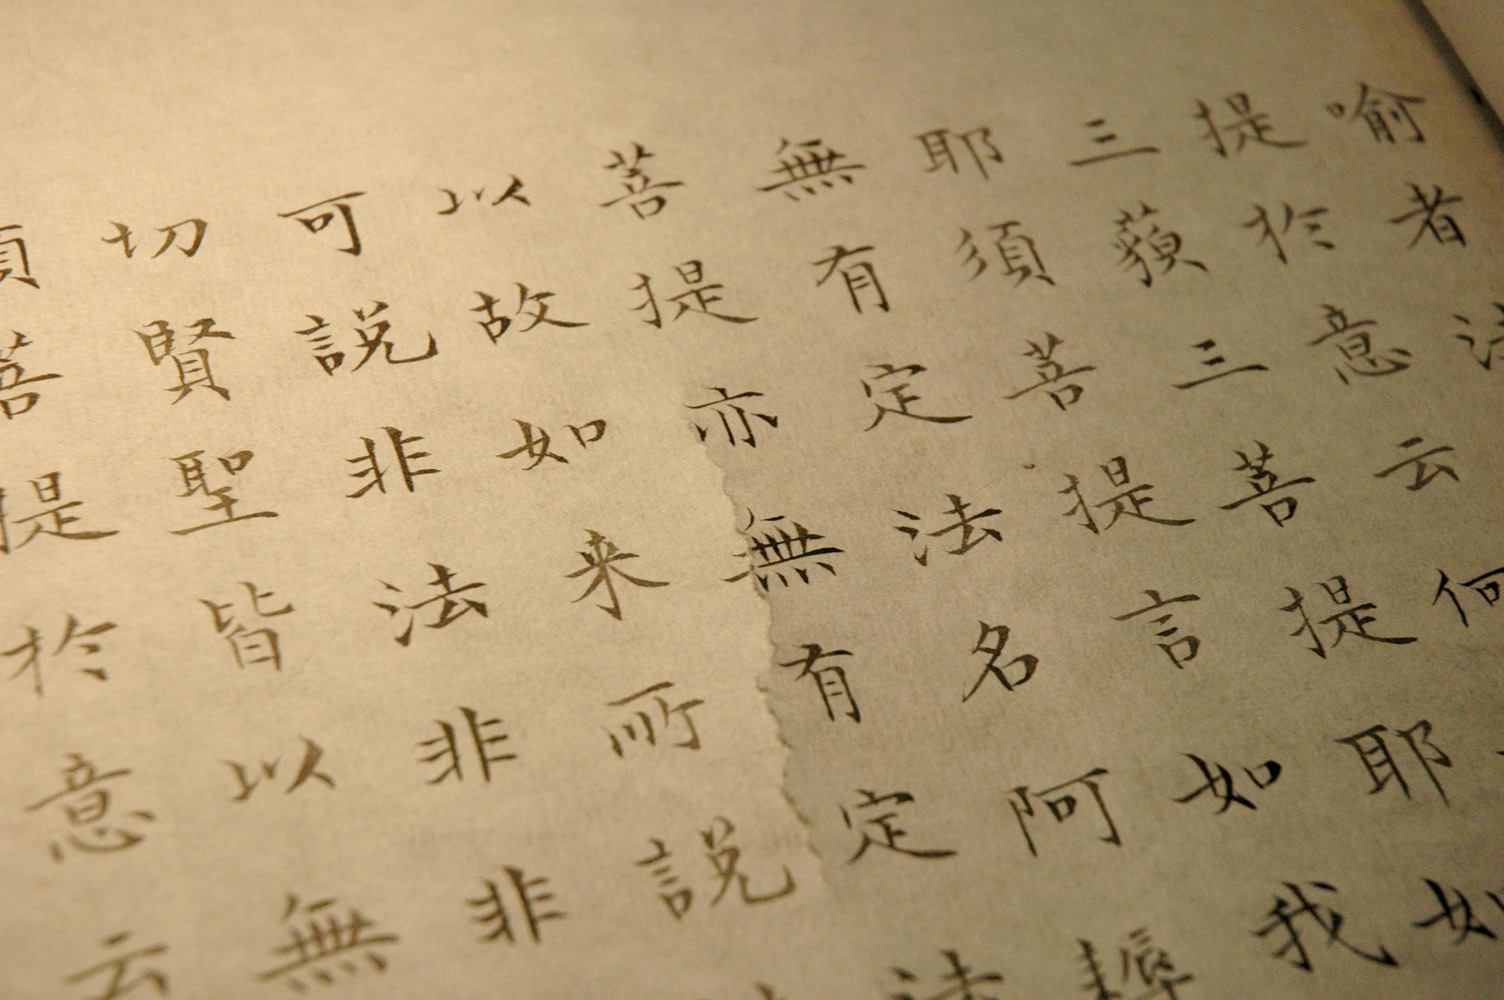 喻者法
提於意云何
三藐三菩提耶如
耶須菩提言如我
無有定法名阿耨
菩提亦無有定法
以故如来所說
可說非法非非
切賢聖皆以無
須菩提於意云